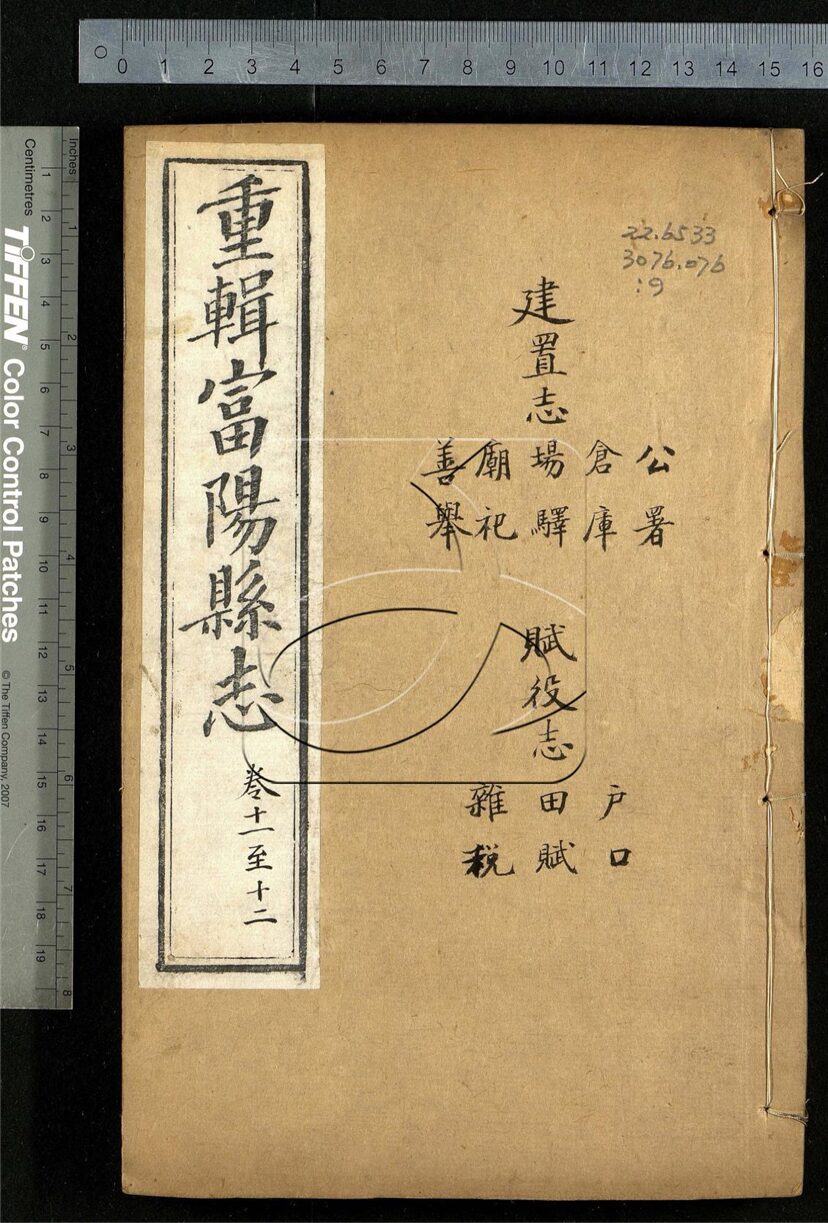 0 1 2 3 4 5 6 7 8 9 10 11 12 13 14 15 16
Inches
1 2 3 4 5 6 7 8
Centimetres
1 2 3 4 5 6 7 8 9 10 11 12 13 14 15 16 17 18 19
TIFFEN® Color Control Patches
© The Tiffen Company, 2007
22.6533
3076.076
:9
建置志
公署
倉庫
場驛
廟祀
善舉
賦役志
户口
田賦
雜税
重輯富陽縣志
卷十一至十二